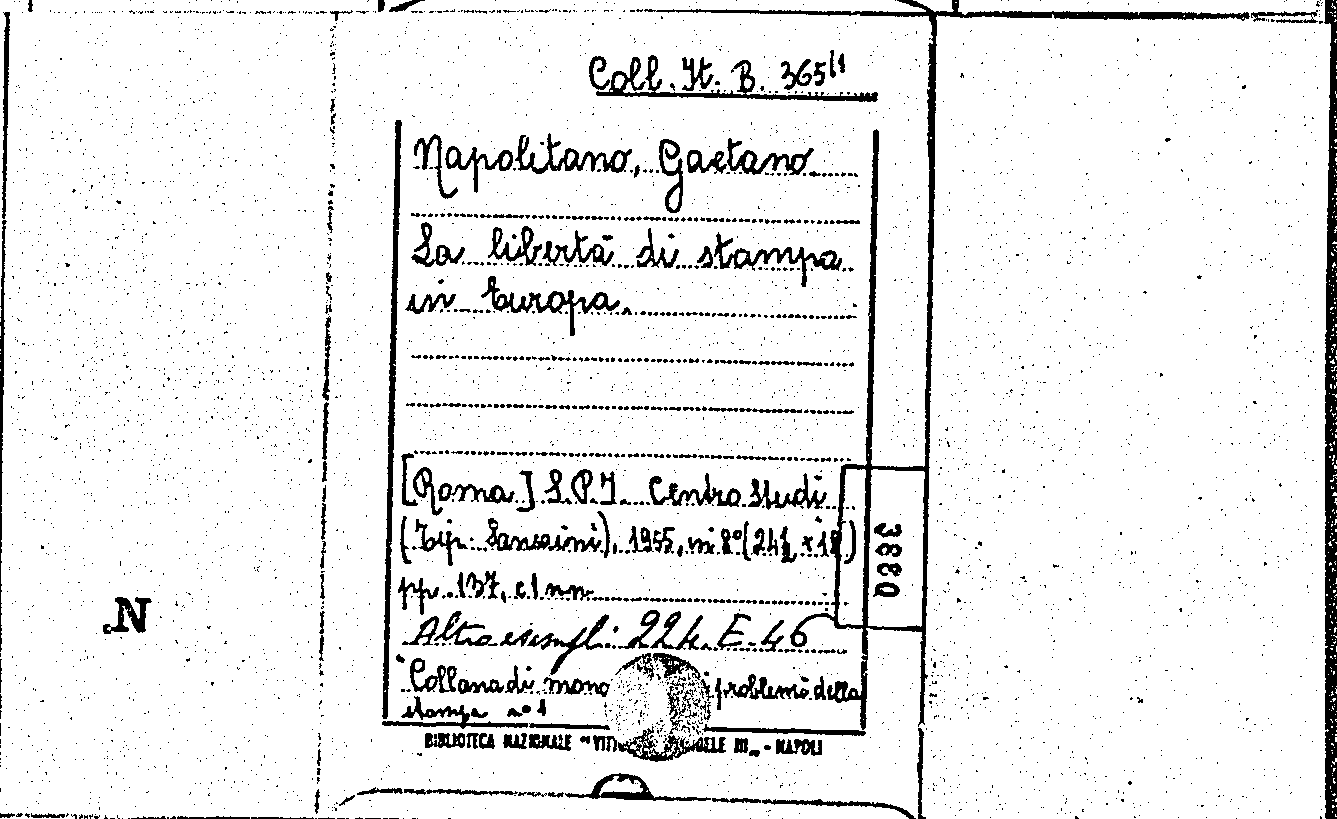 Coll. It. B. 365/1
Napolitano, Gaetano
La libertà di stampa
in Europa.
[Roma] S.P.I. Centro Studi
(Tip. ), 1955, in 8° (24½ x 18)
pp. 137, c 1 nn
Altro esempl: 224. E. 46
Collana di mono problemi della
stampa n° 1
BIBLIOTECA NAZIONALE "VITT ELE III„ - NAPOLI
3880
N.